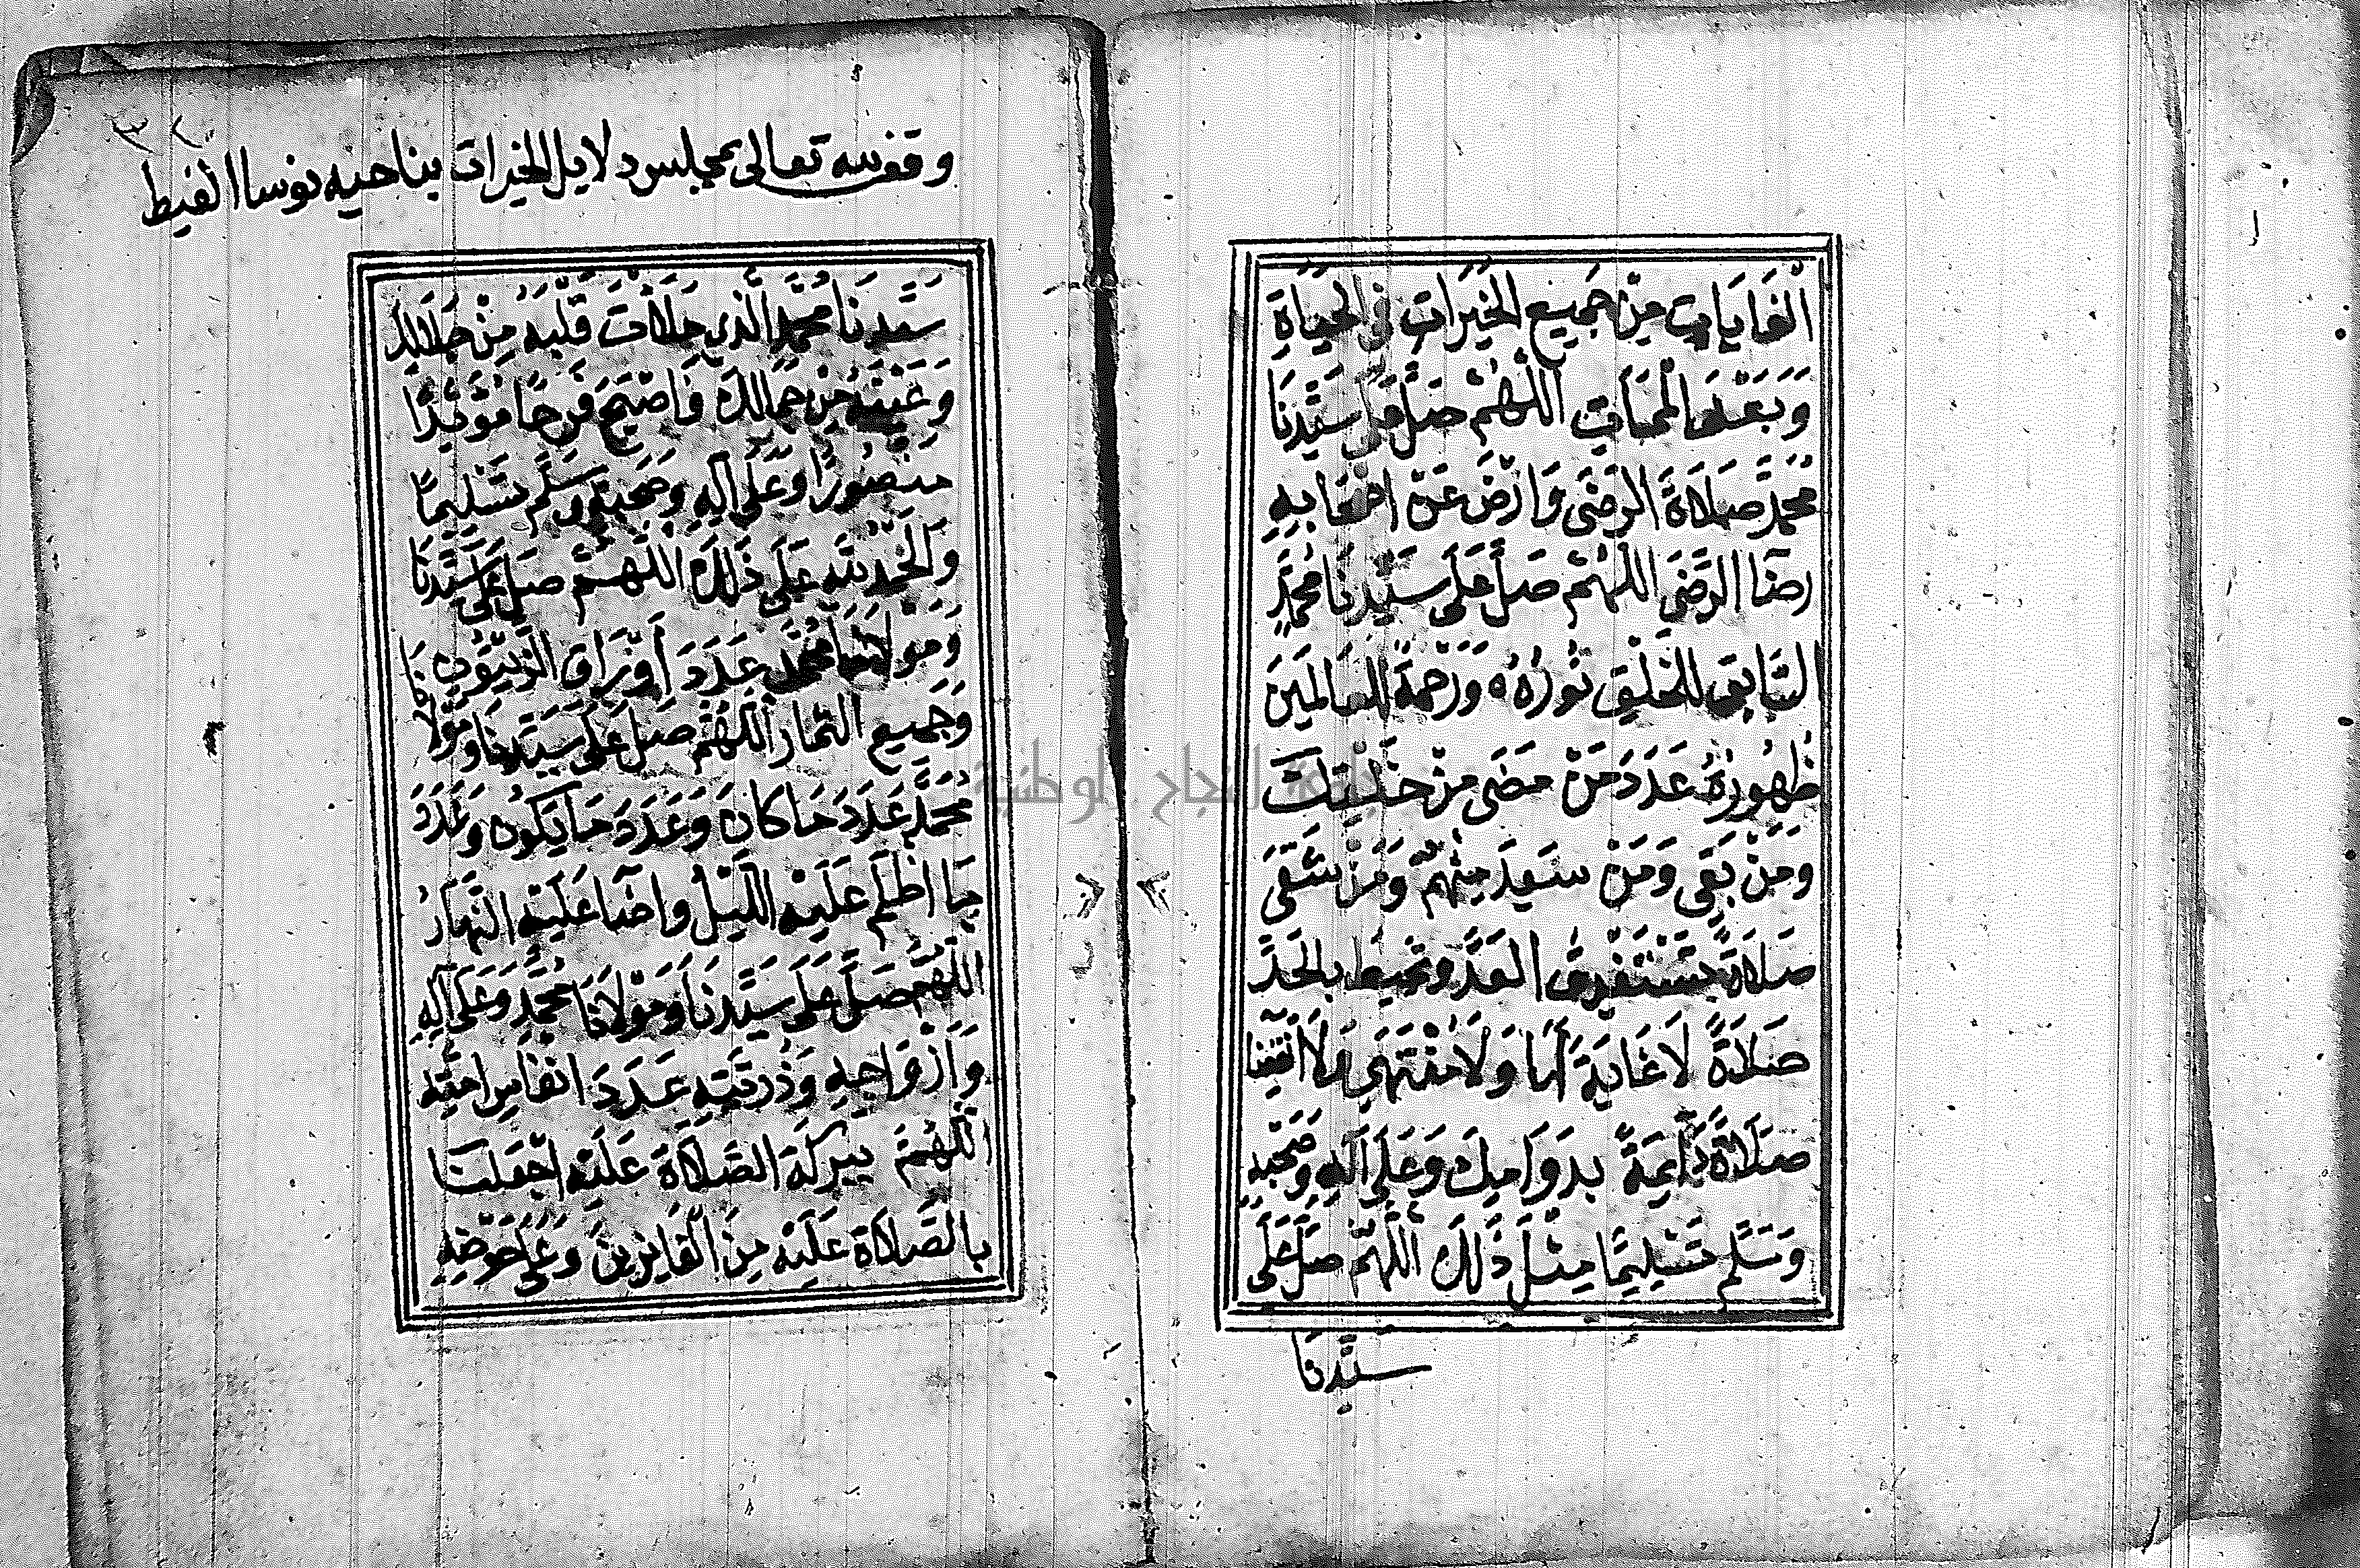 الْغَايَاتِ مِنْ جَمِيعِ الْخَيْرَاتِ فِى الْحَيَاةِ
وَبَعْدَ الْمَمَاتِ اللّٰهُمَّ صَلِّ عَلَى سَيِّدِنَا
مُحَمَّدٍ صَلَاةَ الرِّضَى وَارْضَ عَنْ اصْحَابِهِ
رِضَا الرِّضَى اللّٰهُمَّ صَلِّ عَلَى سَيِّدِنَا مُحَمَّدٍ
السَّابِقِ لِلْخَلْقِ نُورُهُ وَرَحْمَةٌ لِلْعَالَمِينَ
ظُهُورُهُ عَدَدَ مَنْ مَضَى مِنْ خَلْقِكَ
وَمَنْ بَقِيَ وَمَنْ سَعِدَ مِنْهُمْ وَمَنْ شَقَى
صَلَاةً تَسْتَغْرِقُ الْعَدَّ وَتُحِيطُ بِالْحَدِّ
صَلَاةً لَا غَايَةَ لَهَا وَلَا مُنْتَهَى وَلَا انْقِضَا
صَلَاةً دَائِمَةً بِدَوَامِكَ وَعَلَى آلِهِ وَصَحْبِهِ
وَسَلِّمْ تَسْلِيمًا مِثْلَ ذَلِكَ اللّٰهُمَّ صَلِّ عَلَى
سَيِّدِنَا
وقف لله تعالى بمجلس دلايل الخيرات بناحيه نوسا الغيط
سَيِّدِنَا مُحَمَّدٍ الَّذِي مَلَأْتَ قَلْبَهُ مِنْ جَلَالِكَ
وَعَيْنَهُ مِنْ جَمَالِكَ فَاصْبَحَ فَرِحًا مُؤَيَّدًا
مَنْصُورًا وَعَلَى آلِهِ وَصَحْبِهِ وَسَلِّمْ تَسْلِيمًا
وَالْحَمْدُ لِلّٰهِ عَلَى ذَلِكَ اللّٰهُمَّ صَلِّ عَلَى سَيِّدِنَا
وَمَوْلَانَا مُحَمَّدٍ عَدَدَ أَوْرَاقِ الزَّيْتُونِ
وَجَمِيعِ الثِّمَارِ اللّٰهُمَّ صَلِّ عَلَى سَيِّدِنَا وَمَوْلَانَا
مُحَمَّدٍ عَدَدَ مَا كَانَ وَعَدَدَ مَا يَكُونُ وَعَدَدَ
مَا اظْلَمَ عَلَيْهِ اللَّيْلُ وَاضَآ عَلَيْهِ النَّهَارُ
اللّٰهُمَّ صَلِّ عَلَى سَيِّدِنَا وَمَوْلَانَا مُحَمَّدٍ وَعَلَى آلِهِ
وَأَزْوَاجِهِ وَذُرِّيَّتِهِ عَدَدَ انْفَاسِ امَّتِهِ
اللّٰهُمَّ بِبَرَكَةِ الصَّلَاةِ عَلَيْهِ اجْعَلْنَا
بِالصَّلَاةِ عَلَيْهِ مِنَ الْفَايِزِينَ وَعَلَى حَوْضِهِ
جامعة النجاح الوطنية